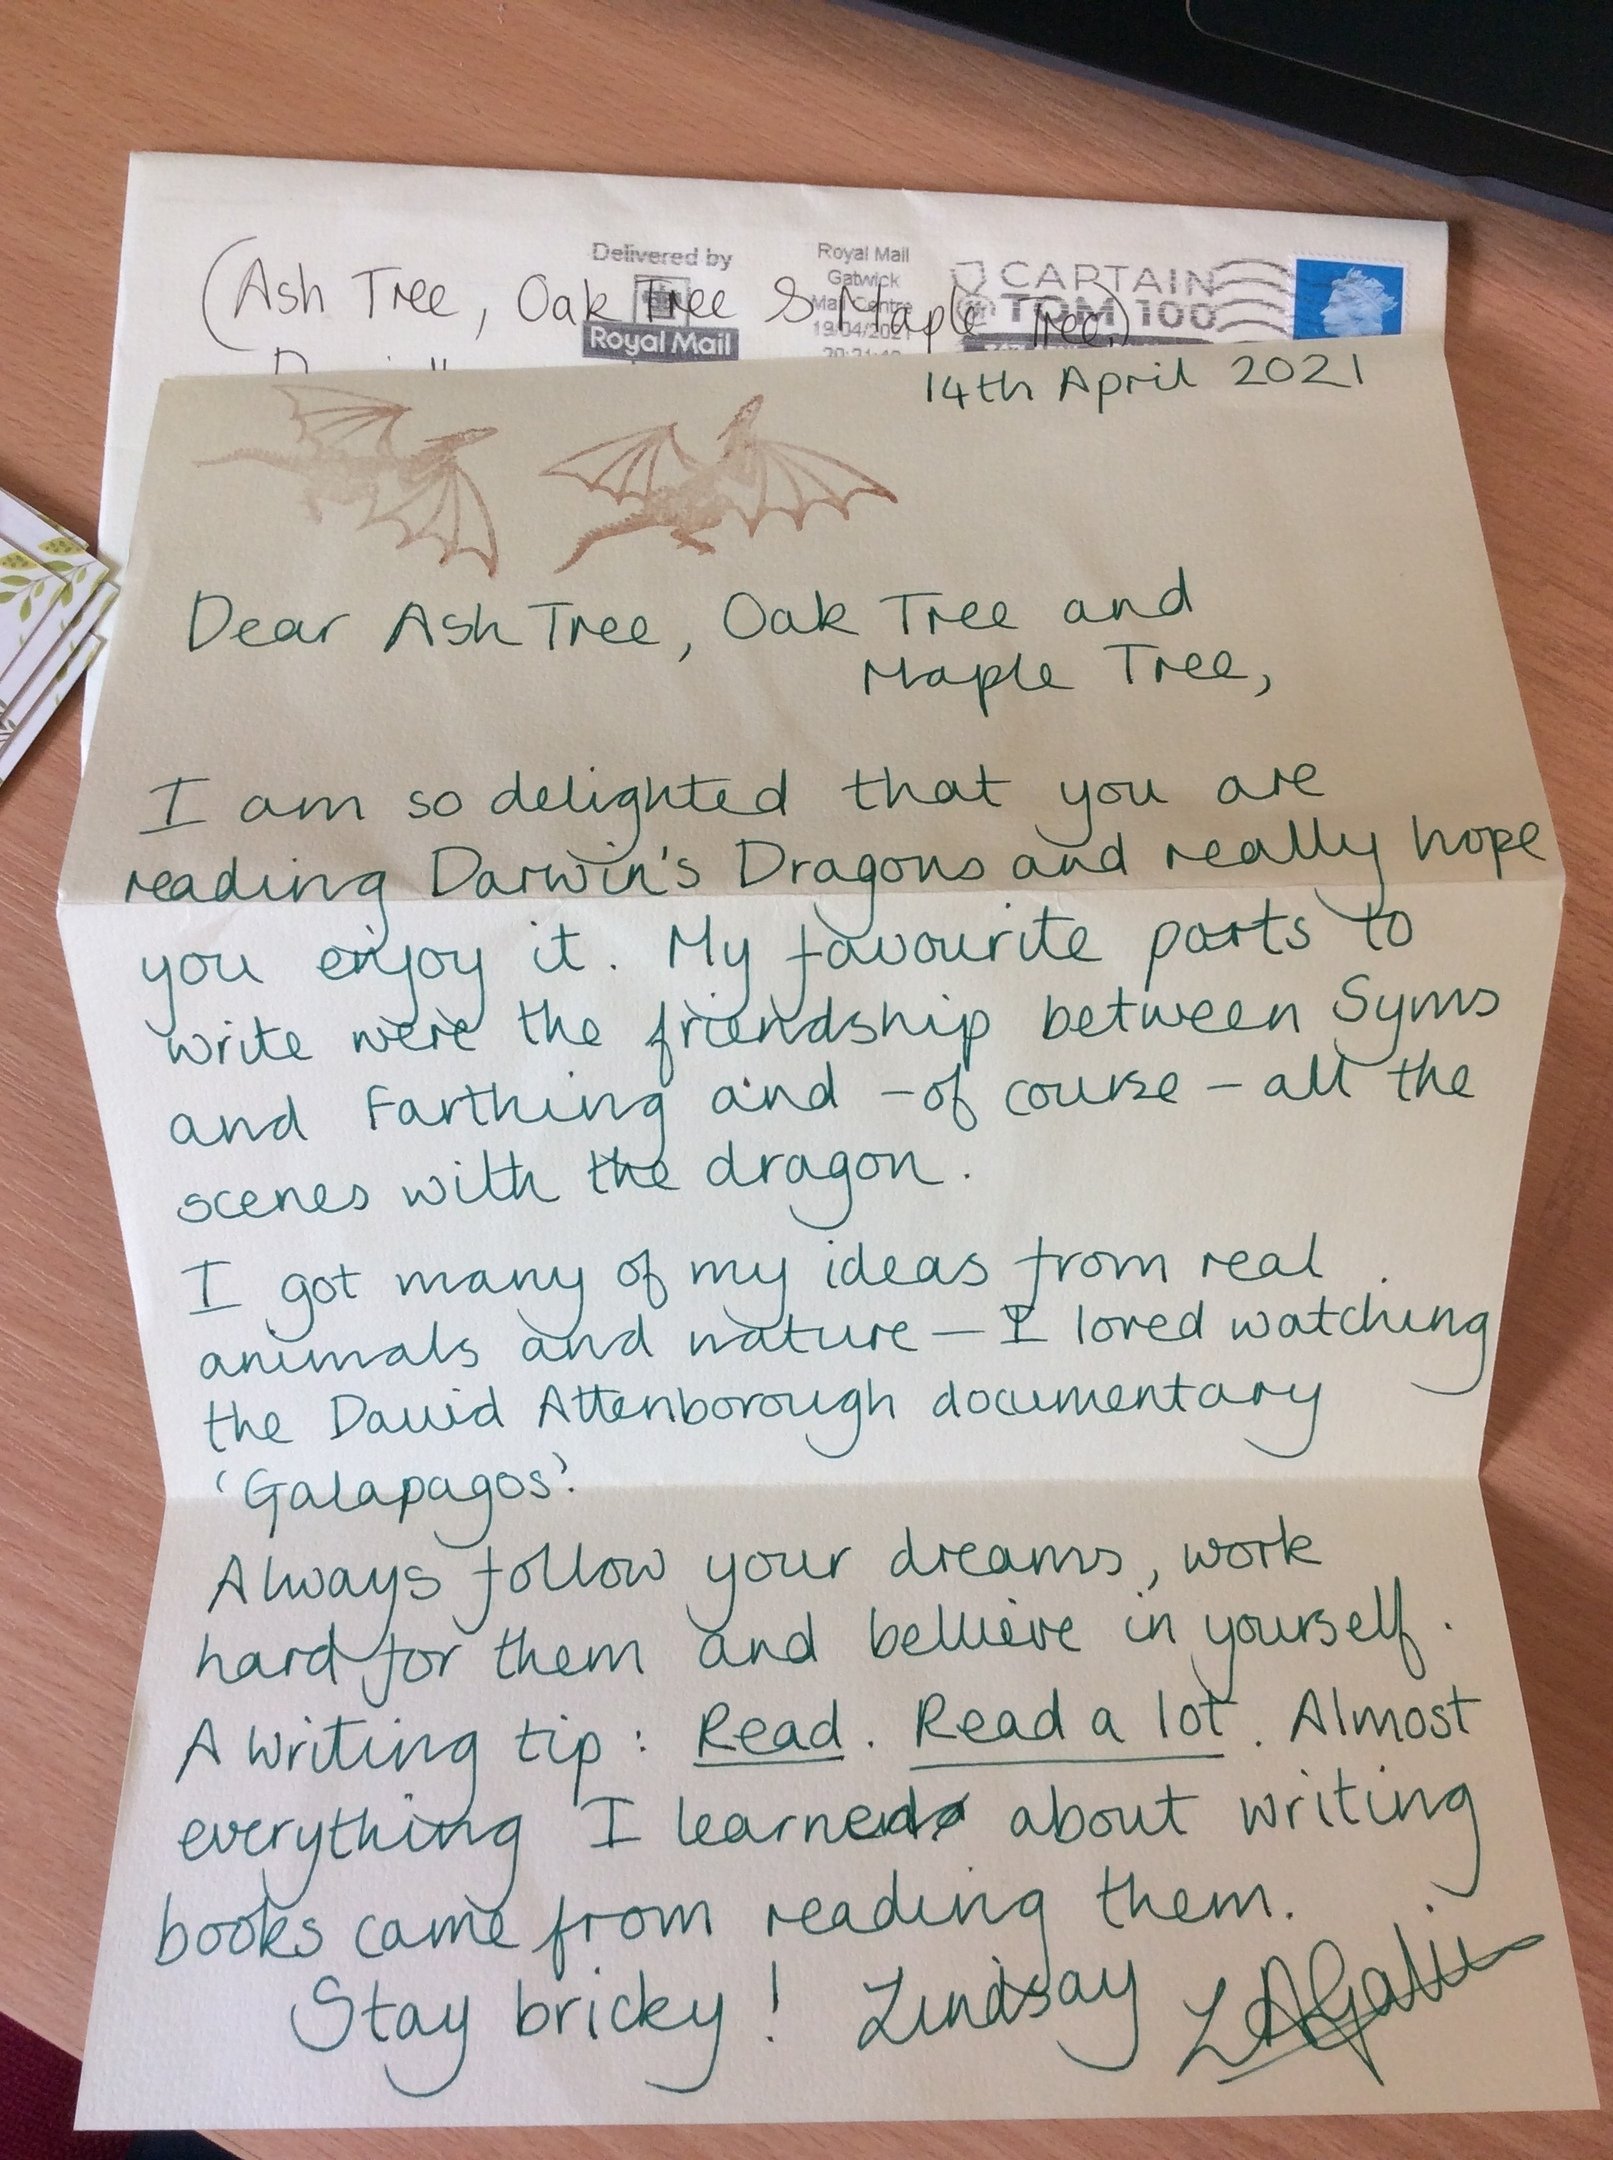 (Ash Tree, Oak Tree & Maple Tree)
Delivered by
Royal Mail
Royal Mail
Gatwick
Mail Centre
19/04/2021
CAPTAIN
TOM 100
14th April 2021
Dear Ash Tree, Oak Tree and
Maple Tree,
I am so delighted that you are
reading Darwin's Dragons and really hope
you enjoy it. My favourite parts to
write were the friendship between Syms
and Farthing and – of course – all the
scenes with the dragon.
I got many of my ideas from real
animals and nature – I loved watching
the David Attenborough documentary
'Galapagos'.
Always follow your dreams, work
hard for them and bellieve in yourself.
A writing tip: Read. Read a lot. Almost
everything I learned about writing
books came from reading them.
Stay bricky! Lindsay LAGalvin